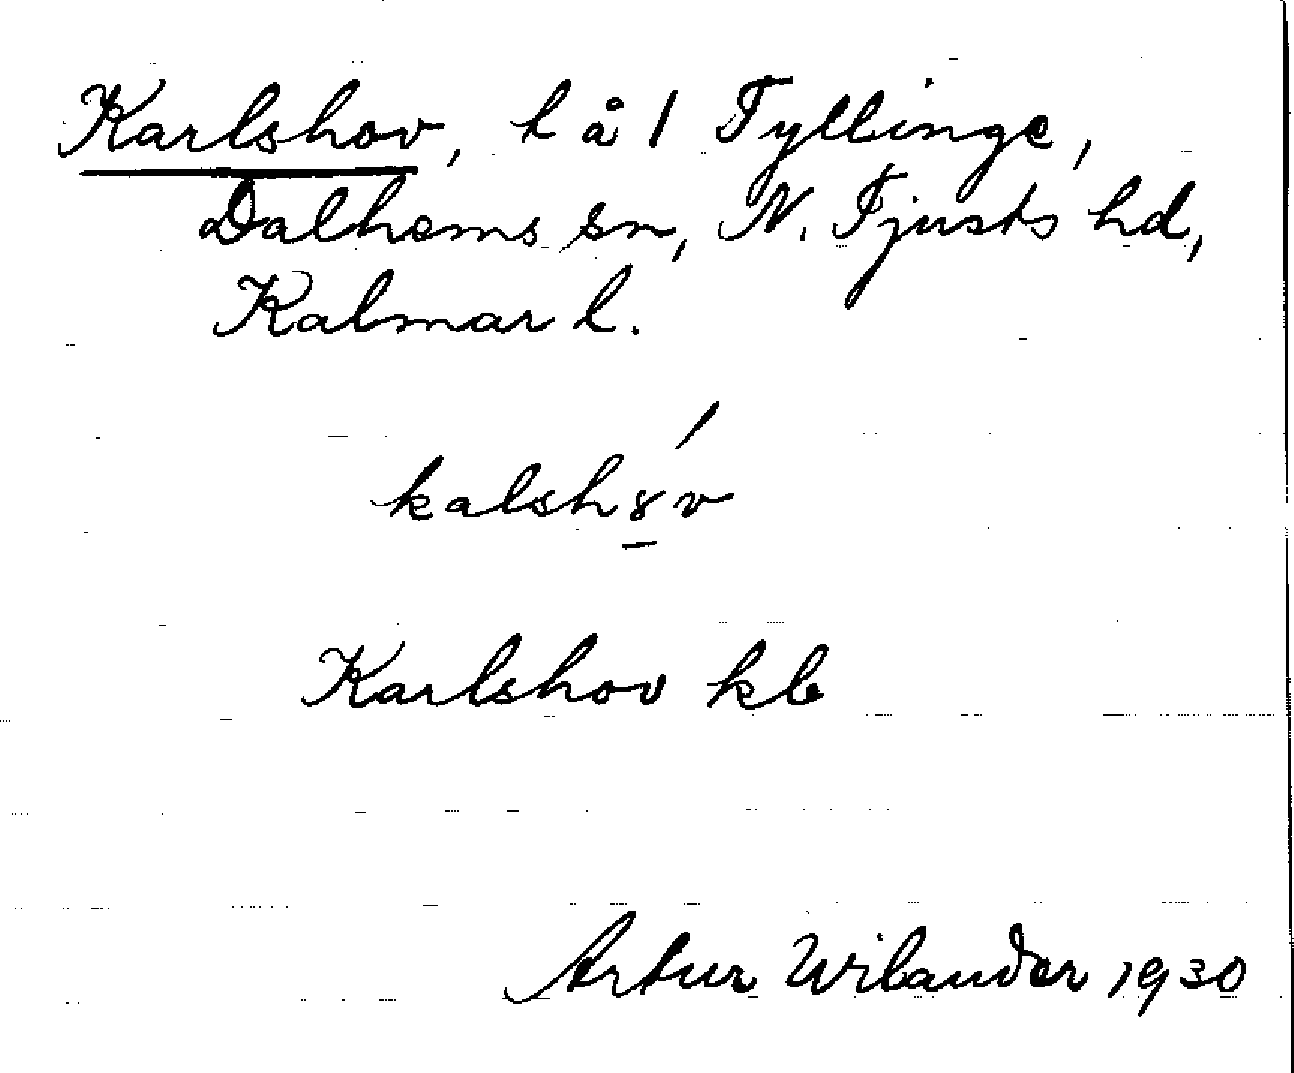 Karlshov, l å 1 Tyllinge,
Dalhems sn, N. Tjusts hd,
Kalmar l.
kalshȣ̲́v
Karlshov kb
Artur Wilander 1930